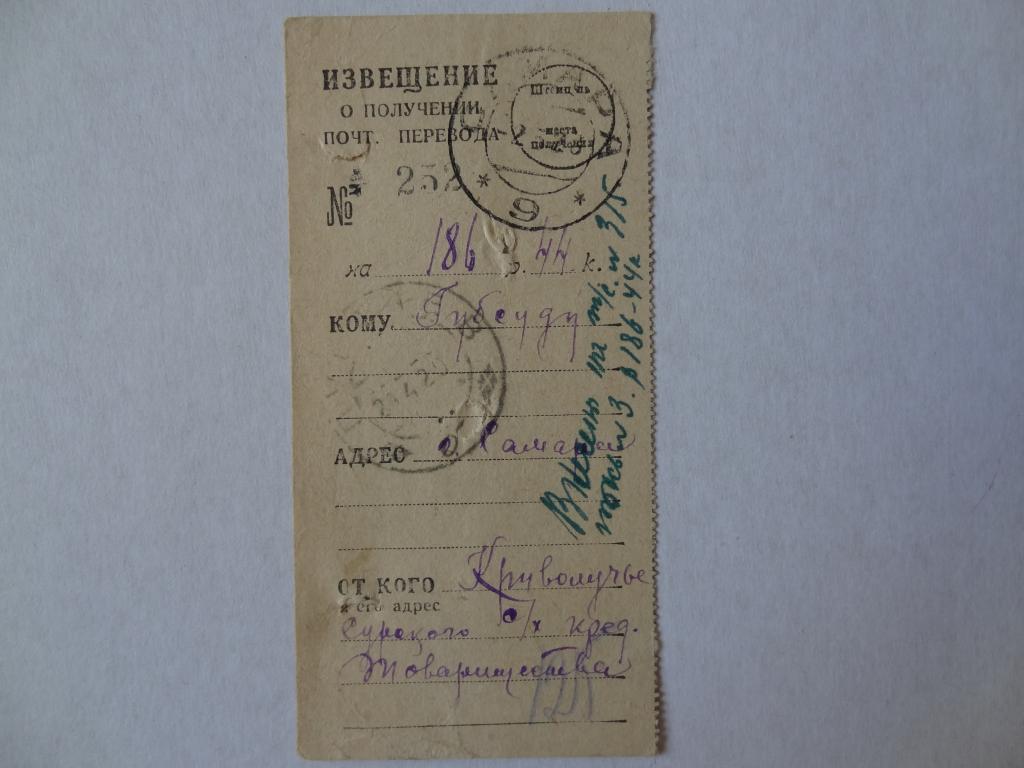 ИЗВЕЩЕНИЕ
О ПОЛУЧЕНИИ
ПОЧТ. ПЕРЕВОДА
Штемпель
места
получения
САМАРА
* 6 *
№ 252
на 186 р. 44 к.
КОМУ Губсуду
АДРЕС Самара
ОТ КОГО Криволучье
и его адрес
Сурского с/х кред.
Товарищества
на т/с. № 315
р 186-44к